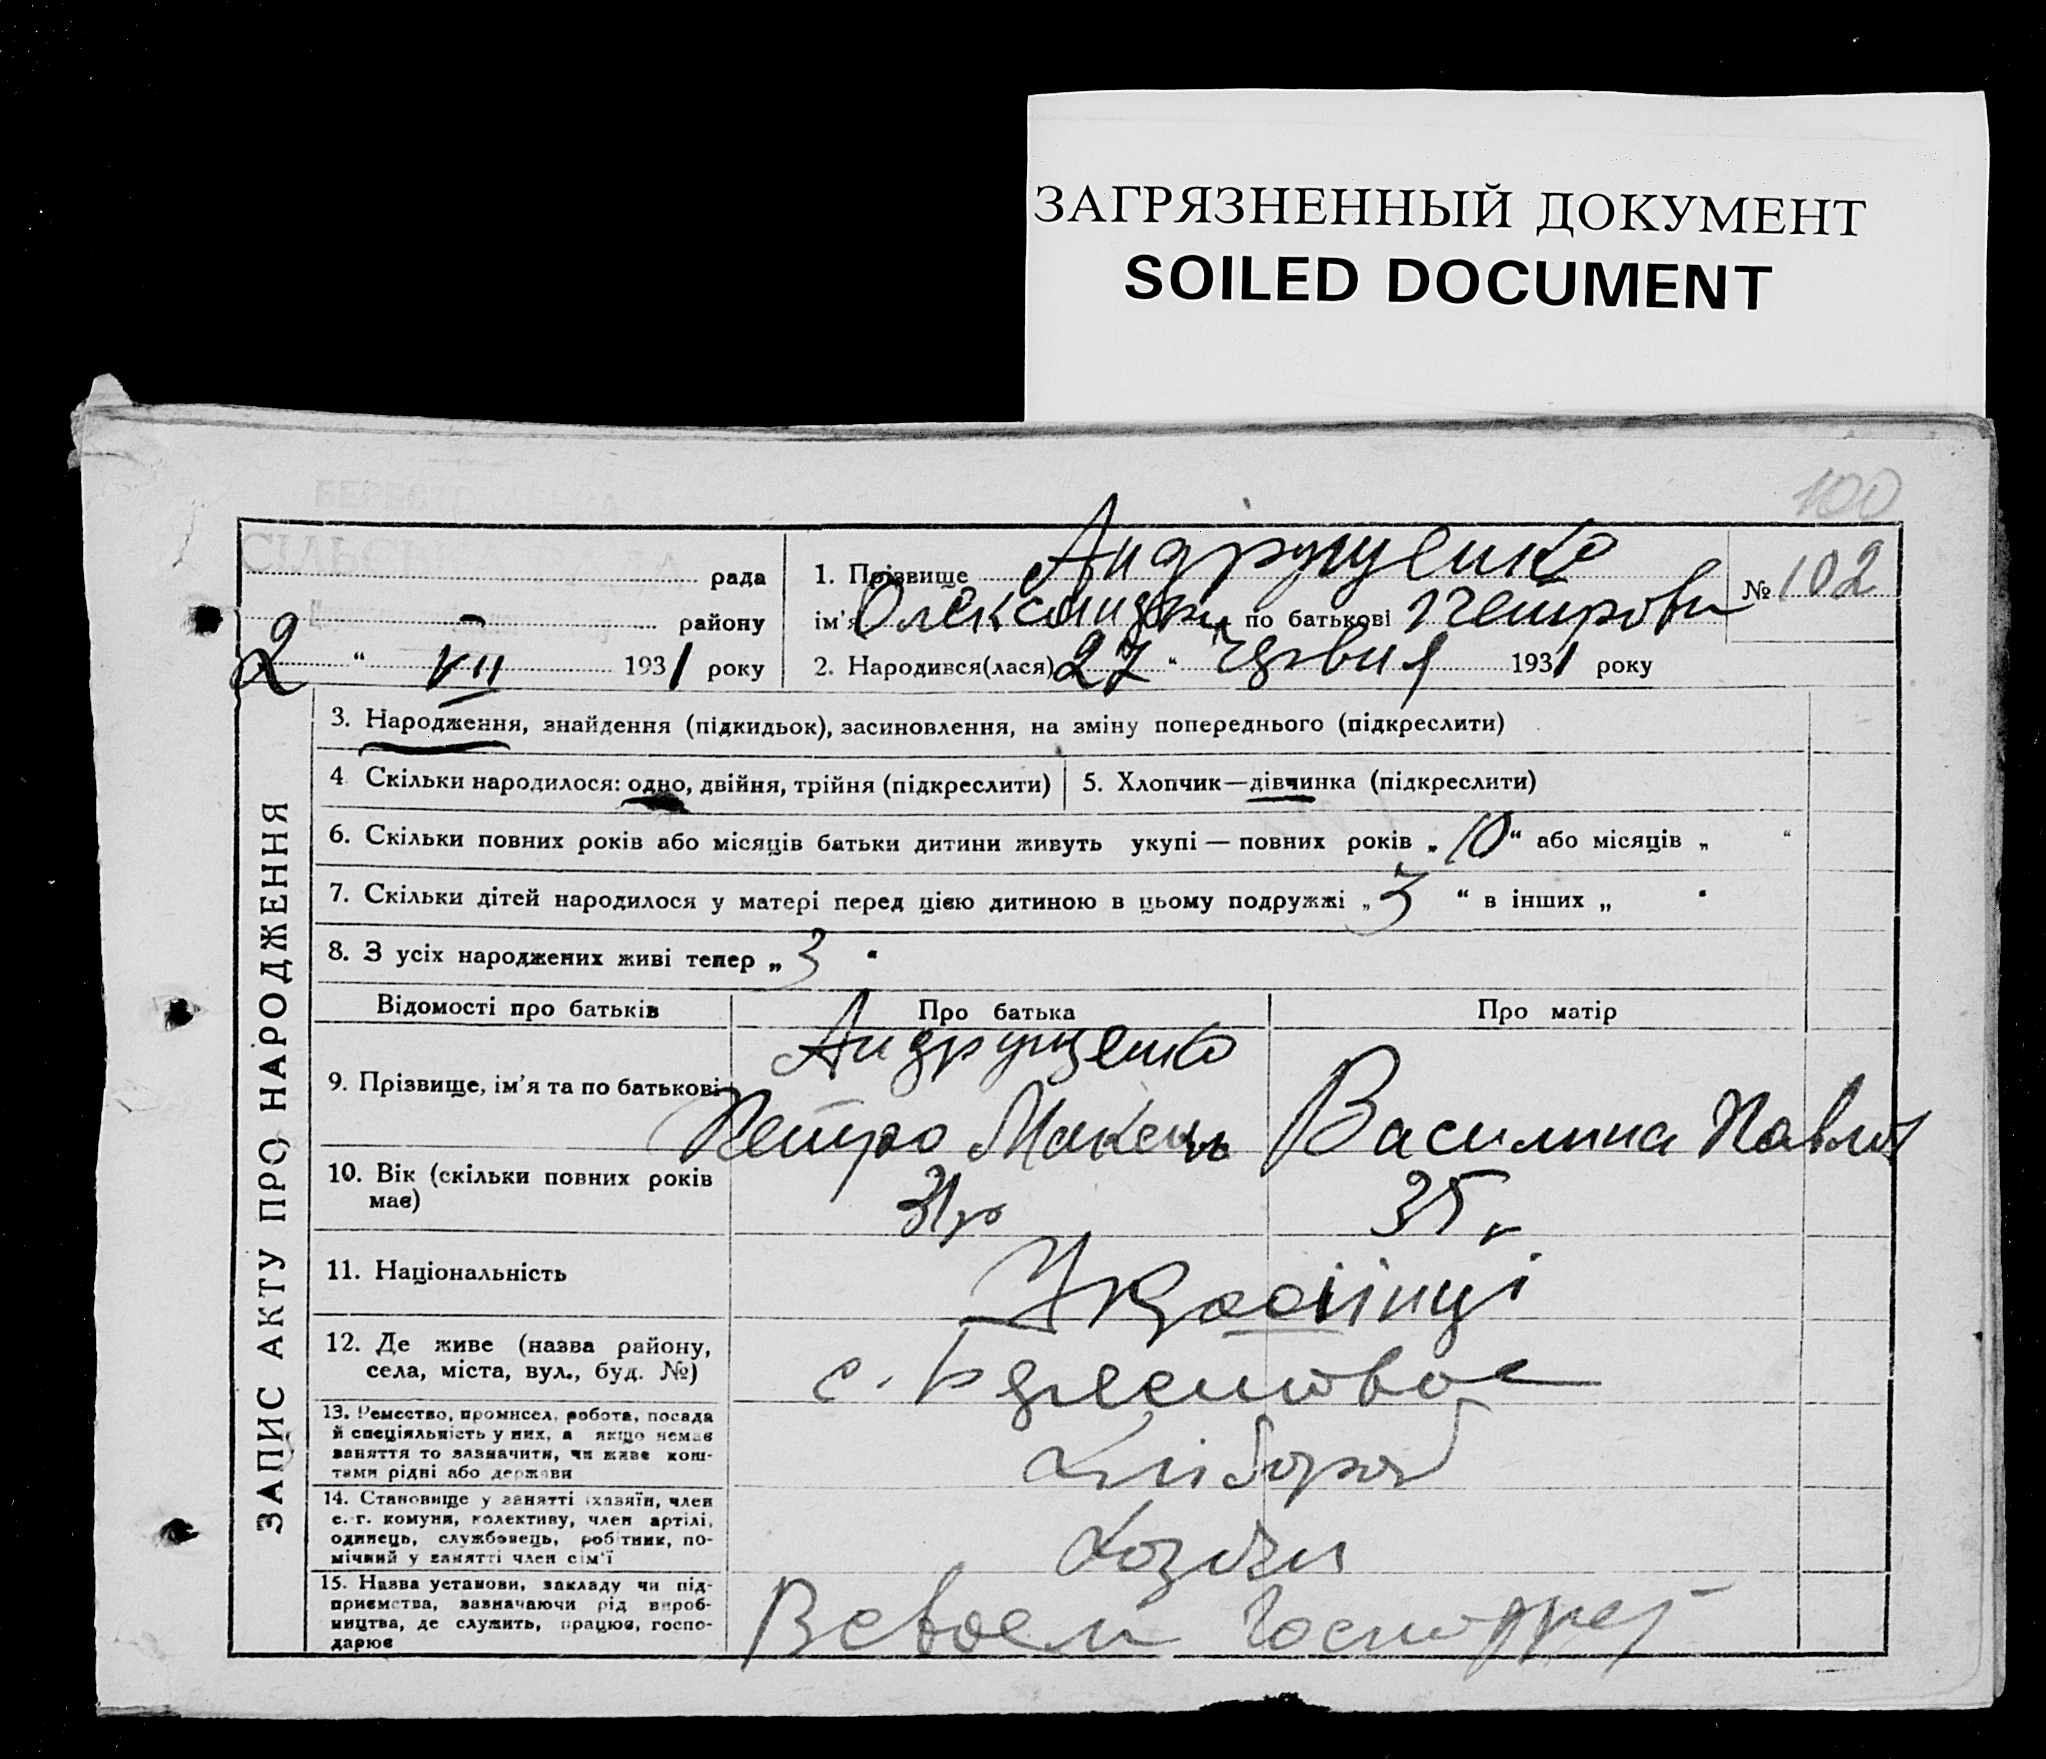 ЗАГРЯЗНЕННЫЙ ДОКУМЕНТ
SOILED DOCUMENT
100
СІЛЬСЬКА РАДА
рада
району
2 " VII 1931 року
1. Прізвище Андрущенко
ім'я Олександра по батькові Петровн
2. Народився(лася) 27 " червня 1931 року
№ 102
ЗАПИС АКТУ ПРО НАРОДЖЕННЯ
3. Народження, знайдення (підкидьок), засиновлення, на зміну попереднього (підкреслити)
4 Скільки народилося: одно, двійня, трійня (підкреслити)
5. Хлопчик—дівчинка (підкреслити)
6. Скільки повних років або місяців батьки дитини живуть укупі — повних років „ 10 “ або місяців „ “
7. Скільки дітей народилося у матері перед цією дитиною в цьому подружжі „ 3 “ в інших „ “
8. З усіх народжених живі тепер „ 3 “
Відомості про батьків
Про батька
Про матір
9. Прізвище, ім'я та по батькові
Андрущенко
Петро
Василина Павлов
10. Вік (скільки повних років
має)
31
35 р
11. Національність
Українці
12. Де живе (назва району,
села, міста, вул., буд. №)
с. Берестовое
13. Ремество, промисел, робота, посада
й спеціяльність у них, а якщо немає
заняття то зазначити, чи живе кош-
тами рідні або держави
Хлібороб
14. Становище у занятті (хазяїн, член
с.-г. комуни, колективу, член артілі,
одинець, службовець, робітник, по-
мічний у занятті член сім'ї
15. Назва установи, закладу чи під-
приємства, зазначаючи рід вироб-
ництва, де служить, працює, госпо-
дарює
В своем